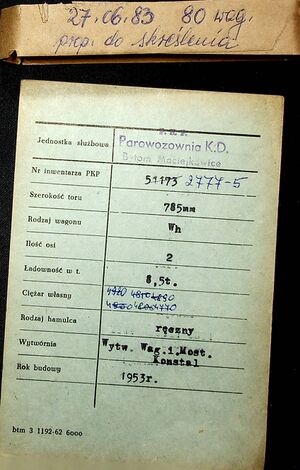 27.06.83 80 wag.
prop. do skreślenia
P. K. P.
Jednostka służbowa Parowozownia K.D.
Bytom Maciejkowice
Nr inwentarza PKP 51173 2777-5
Szerokość toru 785mm
Rodzaj wagonu Wh
Ilość osi 2
Ładowność w t. 8,5t.
Ciężar własny
Rodzaj hamulca ręczny
Wytwórnia Wytw. Wag.i.Most.
Konstal
Rok budowy 1953r.
btm 3 1192-62 6000